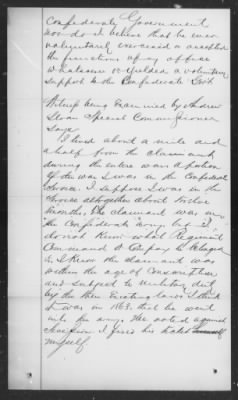 Confederate Government
nor do I believe that he ever
voluntarily exercised or accepted
the functions of any office
whatsoever or yielded a voluntary
support to the Confederate Govt
Witness being Examined by Andrew
Sloan Special Commissioner
Says
I lived about a mile and
a half from the claimant
during the entire war a portion
of the war I was in the Confederate
Service. I suppose I was in the
Service altogether about twelve
months, the claimant was in
the Confederate army but I
do not know what Regiment
Command or Company he belonged
to I know the claimant was
within the age of Conscription
and subject to military duty
by the then Existing laws I think
it was in 1863 that he went
into the army. He voted against
Secession I fixed his ticket
myself.